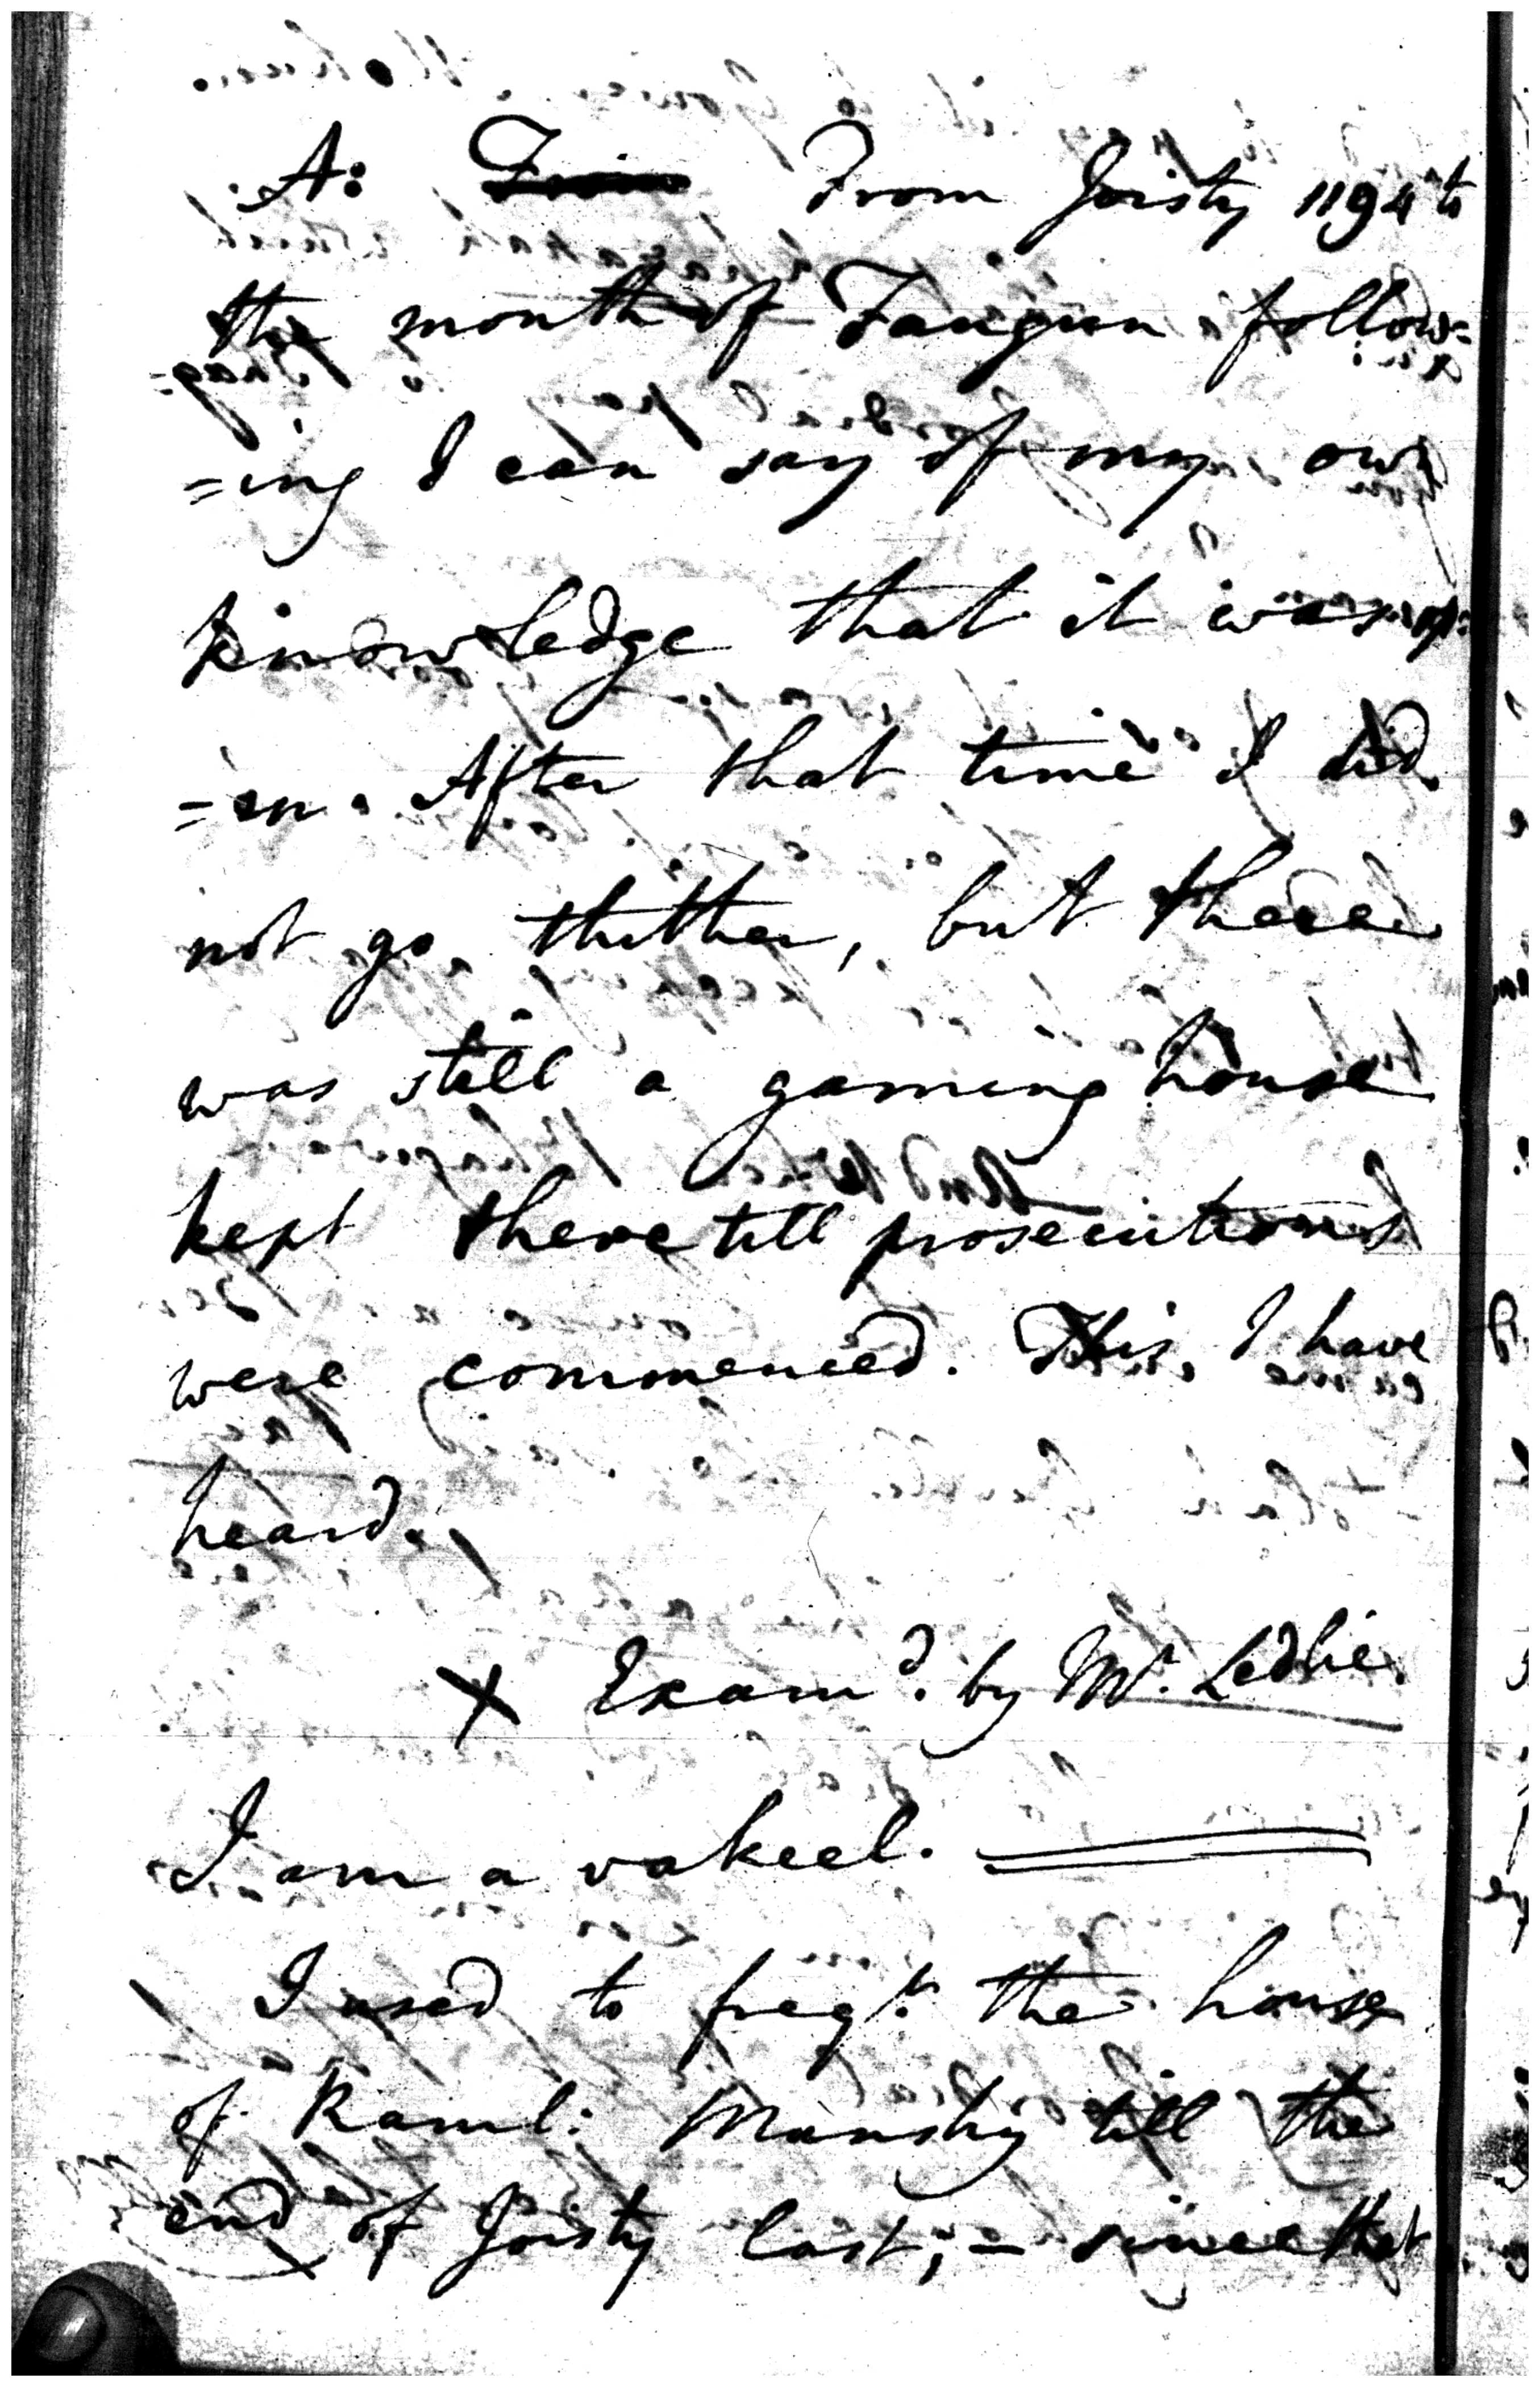 A: From Joisty 1194 to
the month of Faugun follow=
=ing I can say of my own
knowledge that it was op=
=en. After that time I did
not go thither, but there
was still a gaming house
kept there till prosecutions
were commenced. This, I have
heard.
X Examd. by Mr. Ledlie.
I am a vakeel.
I used to freqt. the house
of Raml: Munshy till the
end of Joisty last; - since that